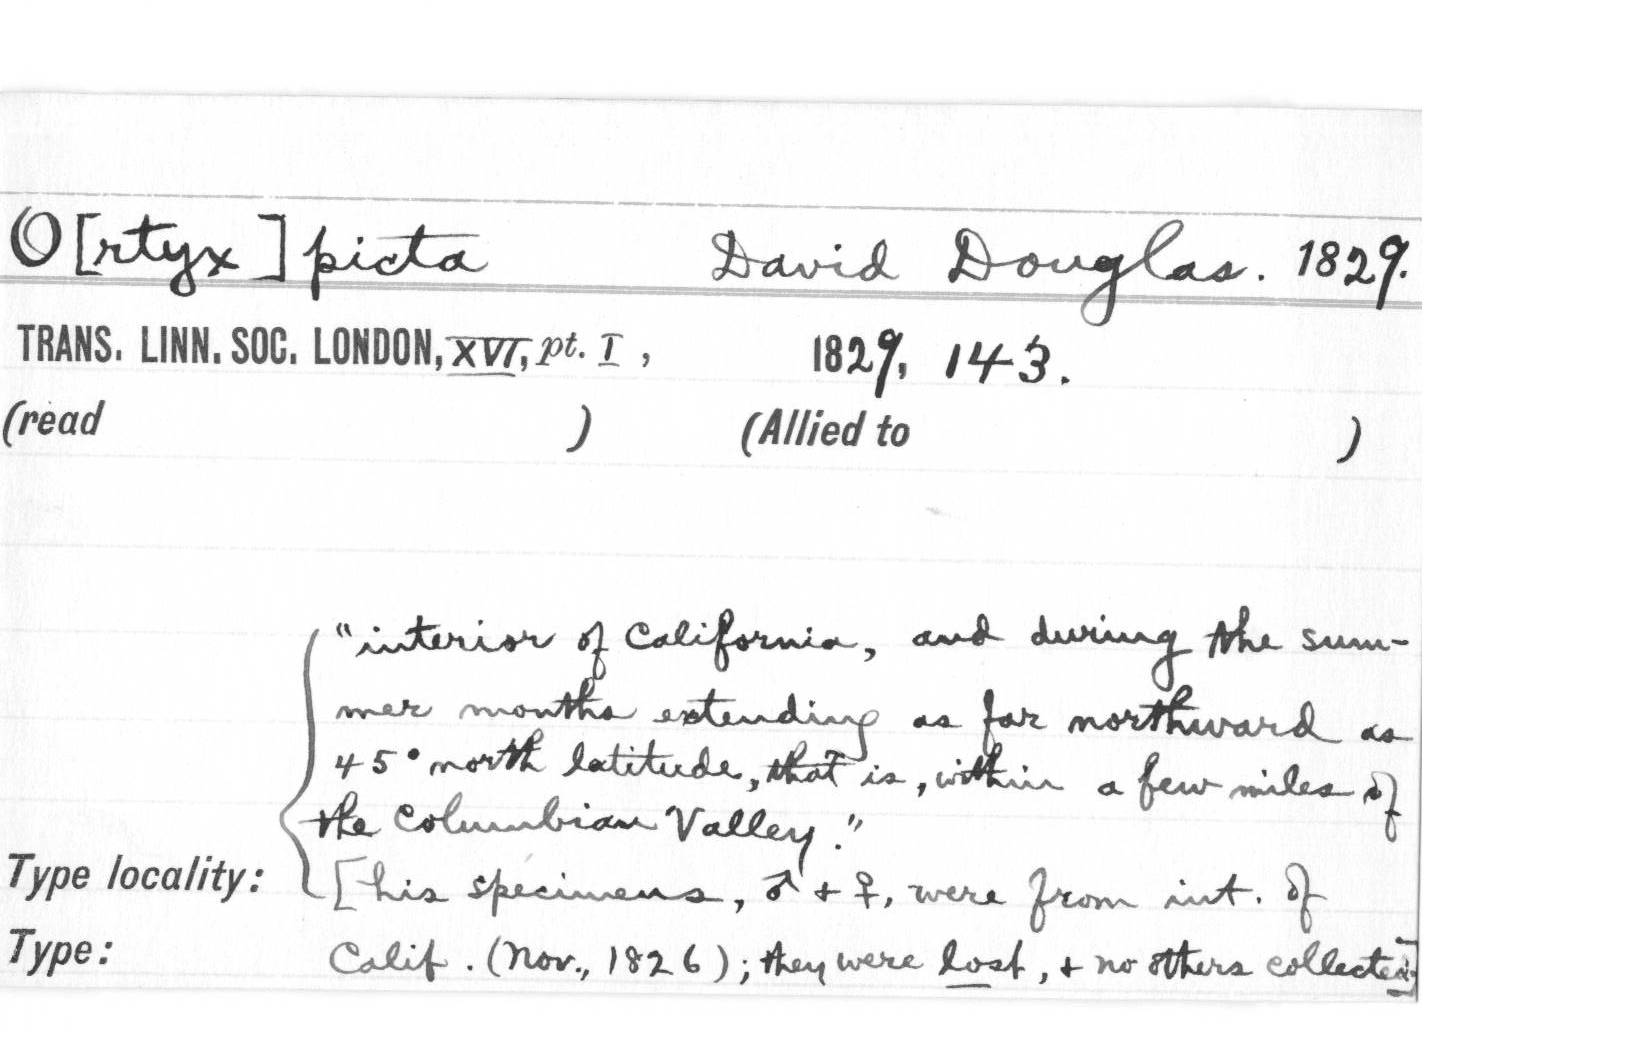 O[rtyx] picta David Douglas. 1829.
TRANS. LINN. SOC. LONDON, XVI, pt. I, 1829, 143.
(read ) (Allied to )
"interior of California, and during the sum-
mer months extending as far northward as
45° north latitude, that is, within a few miles of
the Columbian Valley."
Type locality: [his specimens, ♂ + ♀, were from int. of
Type: Calif. (Nov., 1826); they were lost, + no others collected]